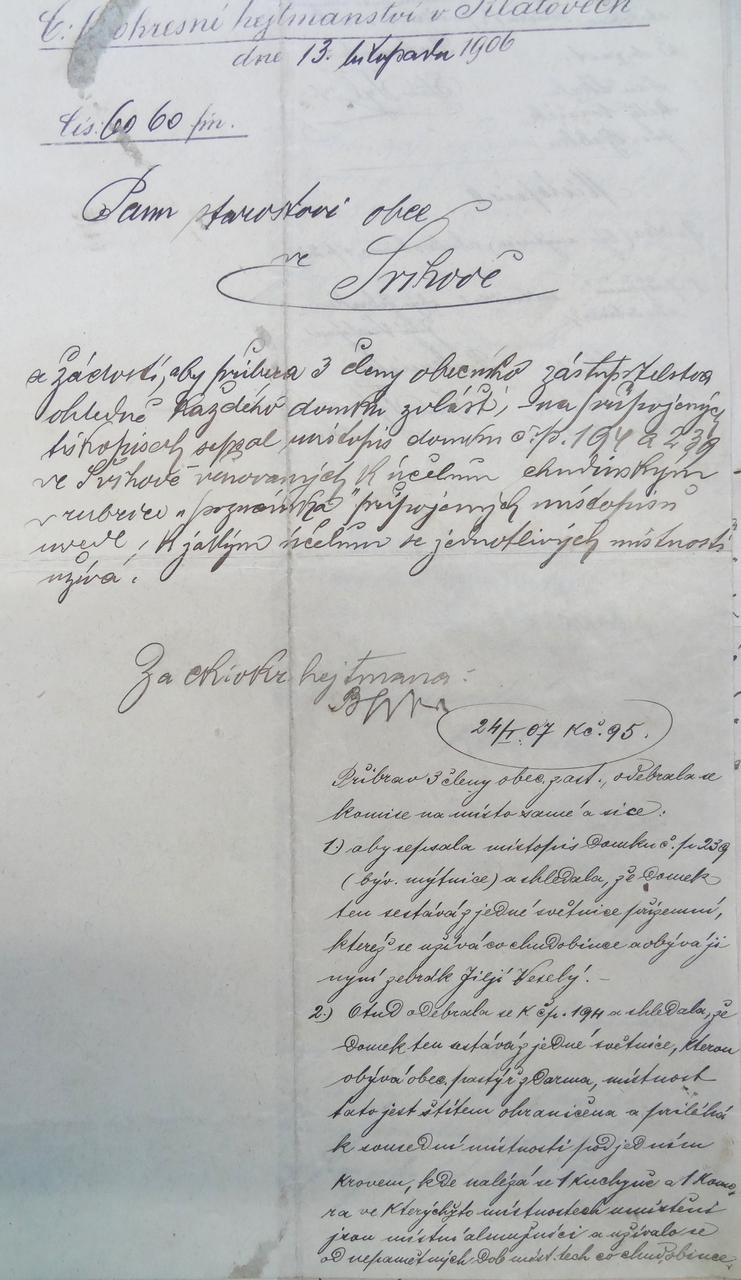 C. k. okresní hejtmanství v Klatovech
dne 13. listopadu 1906
Čís. 6060 pn.
Panu starostovi obce
ve
Švihově
se žádostí, aby přibera 3 členy obecního zastupitelstva
ohledně každého domku zvlášť, na připojených
tiskopisech sepsal místopis domku č. p. 194 a 239
ve Švihově věnovaných k účelům chudinským
v rubrice „poznámka" připojených místopisů
uvedl, k jakým účelům se jednotlivých místností
užívá.
Za c. k. okr. hejtmana:
24/I. 07 K č. 95.
Přibrav 3 členy obec. zast., odebrala se
komise na místo samé a sice:
1) aby sepsala místopis domku č. p. 239
(býv. mýtnice) a shledala, že domek
ten sestává z jedné světnice přízemní,
kteréž se užívá co chudobince a obývá ji
nyní žebrák Jiljí Veselý. –
2.) Otud odebrala se k čp. 194 a shledala, že
domek ten sestává z jedné světnice, kterou
obývá obec. pastýř zdarma, místnost
tato jest štítem ohraničena a přiléhá
k sousední místnosti pod jedním
krovem, kde nalézá se 1 kuchyně a 1 komo-
ra ve kterýchžto místnostech umístěni
jsou místní almužníci a užívalo se
od nepamětných dob míst. těch co chudobince